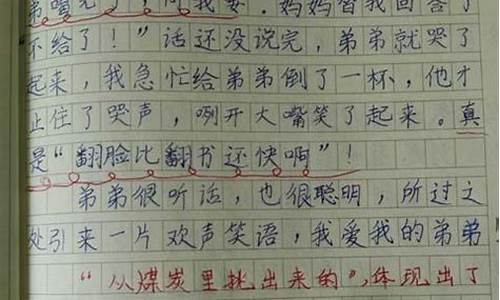 弟喝完了，向我要。妈妈替我回答了
不给了！”话还没说完，弟弟就哭了
起来，我急忙给弟弟倒了一杯，他才
止住了哭声，咧开大嘴笑了起来。真
是“翻脸比翻书还快啊”！
弟弟很听话，也很聪明，所过之
处引来一片欢声笑语，我爱我的弟弟
“从煤炭里挑出来的”，体现出了